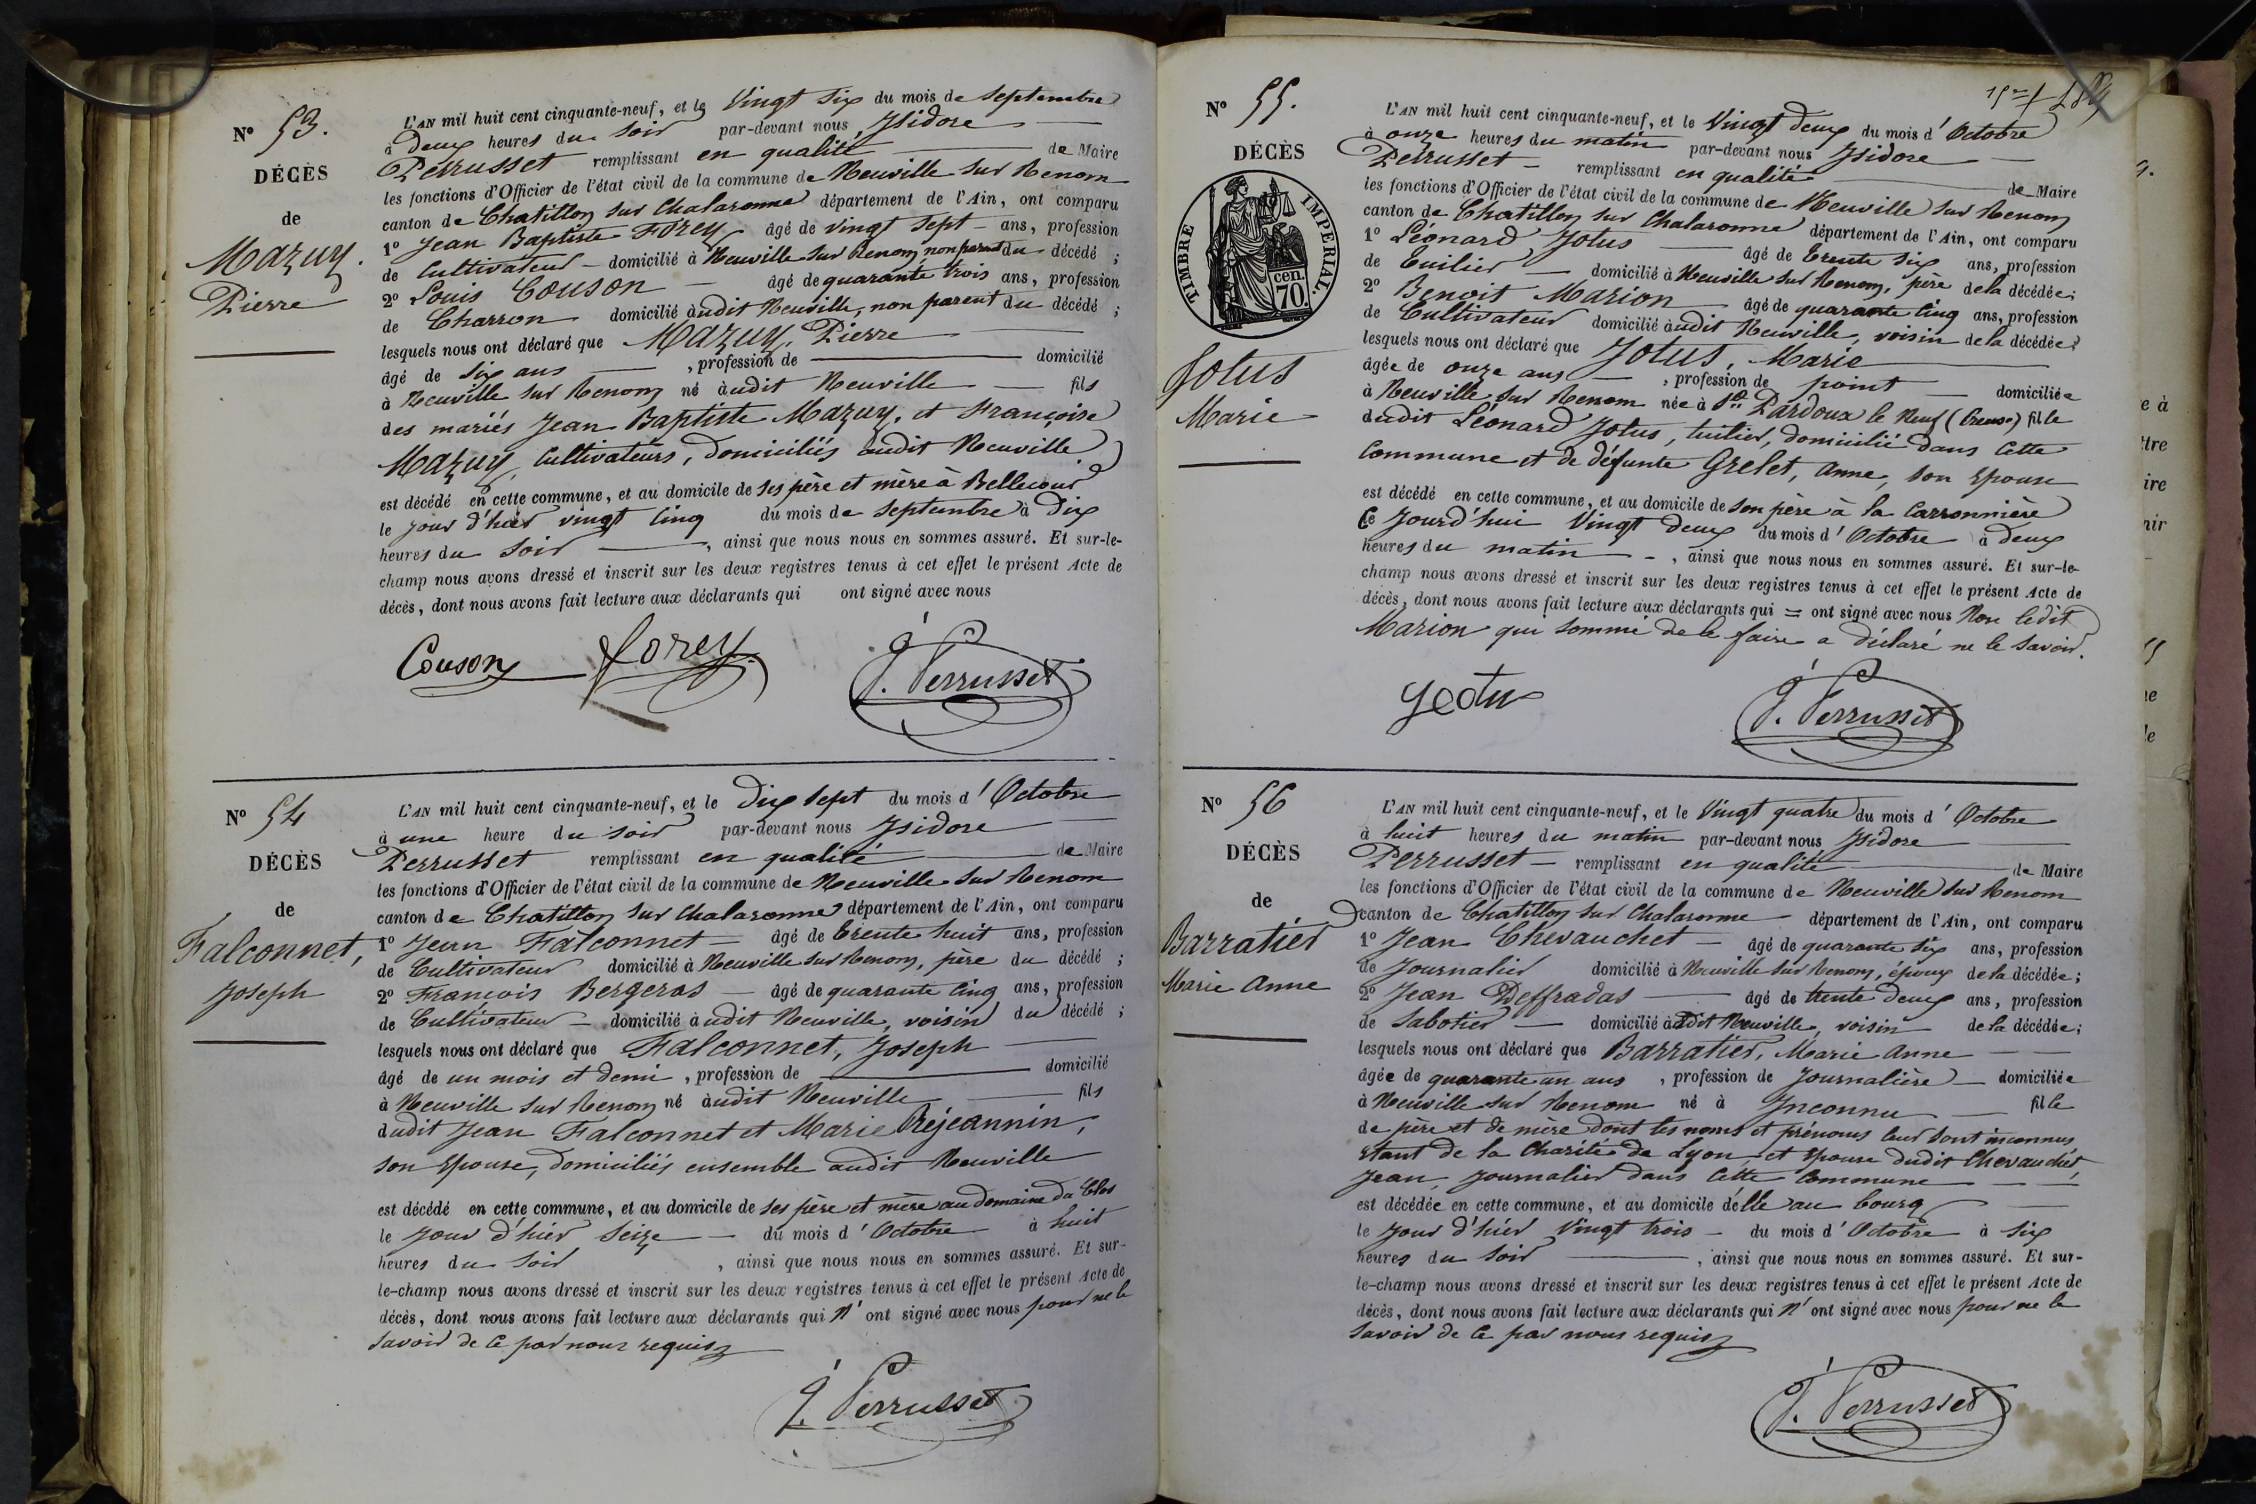 N° 53.
DÉCÈS
de
Mazuy.
Pierre
L'AN mil huit cent cinquante-neuf, et le Vingt six du mois de Septembre
à Deux heures du soir par-devant nous, Isidore
Perrusset remplissant en qualité de Maire
les fonctions d'Officier de l'état civil de la commune de Neuville sur Renom
canton de Chatillon sur Chalaronne département de l'Ain, ont comparu
1° Jean Baptiste Forey âgé de vingt sept ans, profession
de Cultivateur domicilié à Neuville sur Renom, non parent du décédé ;
2° Louis Couson âgé de quarante trois ans, profession
de Charron domicilié àudit Neuville, non parent du décédé ;
lesquels nous ont déclaré que Mazuy, Pierre
âgé de six ans , profession de domicilié
à Neuville sur Renom né àudit Neuville fils
des mariés Jean Baptiste Mazuy, et Françoise
Mazuy, Cultivateurs, domiciliés audit Neuville
est décédé en cette commune, et au domicile de ses père et mère à Bellecour
le jour d'hier vingt cinq du mois de septembre à Dix
heures du soir , ainsi que nous nous en sommes assuré. Et sur-le-
champ nous avons dressé et inscrit sur les deux registres tenus à cet effet le présent Acte de
décès, dont nous avons fait lecture aux déclarants qui ont signé avec nous
Couson forey J. Perrusset
N° 54
DÉCÈS
de
Falconnet,
Joseph
L'AN mil huit cent cinquante-neuf, et le Dix sept du mois d'Octobre
à une heure du soir par-devant nous Isidore
Perrusset remplissant en qualité de Maire
les fonctions d'Officier de l'état civil de la commune de Neuville sur Renom
canton de Chatillon sur Chalaronne département de l'Ain, ont comparu
1° Jean Falconnet âgé de trente huit ans, profession
de Cultivateur domicilié à Neuville sur Renom, père du décédé ;
2° François Bergeras âgé de quarante cinq ans, profession
de Cultivateur domicilié àudit Neuville, voisin du décédé ;
lesquels nous ont déclaré que Falconnet, Joseph
âgé de un mois et demi , profession de domicilié
à Neuville sur Renom né àudit Neuville fils
dudit Jean Falconnet et Marie Préjeannin,
son Epouse, domiciliés ensemble audit Neuville
est décédé en cette commune, et au domicile de ses père et mère au domaine du Clos
le jour d'hier Seize du mois d'Octobre à huit
heures du soir , ainsi que nous nous en sommes assuré. Et sur-
le-champ nous avons dressé et inscrit sur les deux registres tenus à cet effet le présent Acte de
décès, dont nous avons fait lecture aux déclarants qui N'ont signé avec nous pour ne le
savoir de ce par nous requis
J. Perrusset
N° 55.
DÉCÈS
TIMBRE IMPERIAL.
cen.
70.
Jotus
Marie
L'AN mil huit cent cinquante-neuf, et le Vingt deux du mois d'Octobre
à onze heures du matin par-devant nous Isidore
Perrusset remplissant en qualité de Maire
les fonctions d'Officier de l'état civil de la commune de Neuville sur Renom
canton de Chatillon sur Chalaronne département de l'Ain, ont comparu
1° Léonard Jotus âgé de trente six ans, profession
de Tuilier domicilié à Neuville sur Renom, père de la décédée;
2° Benoit Marion âgé de quarante cinq ans, profession
de Cultivateur domicilié àudit Neuville, voisin de la décédée;
lesquels nous ont déclaré que Jotus, Marie
âgée de onze ans , profession de point domiciliée
à Neuville sur Renom née à St Pardoux le Neuf (Creuse) fille
dudit Léonard Jotus, tuilier, domicilié dans cette
Commune et de défunte Grelet, Anne, son Epouse
est décédé en cette commune, et au domicile de son père à la Carronnière
Ce Jourd'hui Vingt deux du mois d'Octobre à deux
heures du matin , ainsi que nous nous en sommes assuré. Et sur-le-
champ nous avons dressé et inscrit sur les deux registres tenus à cet effet le présent Acte de
décès, dont nous avons fait lecture aux déclarants qui = ont signé avec nous Non ledit
Marion qui sommé de le faire a déclaré ne le savoir.
J. Perrusset
N° 56
DÉCÈS
de
Barratier
Marie Anne
L'AN mil huit cent cinquante-neuf, et le Vingt quatre du mois d'Octobre
à huit heures du matin par-devant nous Isidore
Perrusset remplissant en qualité de Maire
les fonctions d'Officier de l'état civil de la commune de Neuville sur Renom
canton de Chatillon sur Chalaronne département de l'Ain, ont comparu
1° Jean Chevauchet âgé de quarante six ans, profession
de Journalier domicilié à Neuville sur Renom, époux de la décédée;
2° Jean Deffradas âgé de trente deux ans, profession
de Sabotier domicilié àudit Neuville, voisin de la décédée;
lesquels nous ont déclaré que Barratier, Marie Anne
âgée de quarante un ans , profession de Journalière domiciliée
à Neuville sur Renom né à Inconnu fille
de père et de mère dont les noms et prénoms leur sont inconnus
Etant de la Charité de Lyon, et Epouse dudit Chevauchet,
Jean, Journalier dans cette Commune
est décédée en cette commune, et au domicile d'elle au bourg
le jour d'hier Vingt trois du mois d'Octobre à six
heures du soir , ainsi que nous nous en sommes assuré. Et sur-
le-champ nous avons dressé et inscrit sur les deux registres tenus à cet effet le présent Acte de
décès, dont nous avons fait lecture aux déclarants qui N'ont signé avec nous pour ne le
savoir de ce par nous requis
J. Perrusset